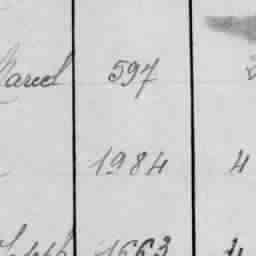 Marcel 597
1984 4
1663